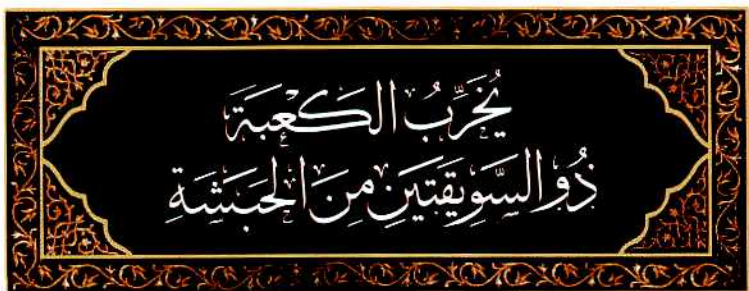 يُخَرِّبُ الكَعْبَةَ
ذُو السَّوِيقَتَينِ مِنَ الحَبَشَةِ